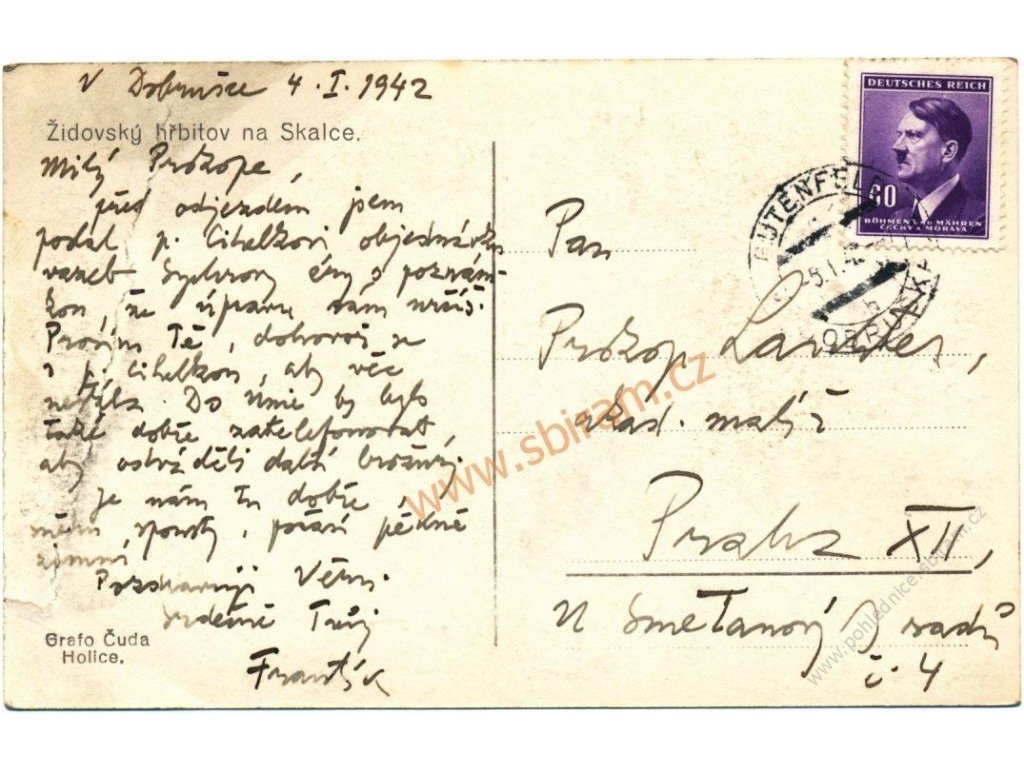 V Dobrušce 4. I. 1942
Židovský hřbitov na Skalce.
Milý Prokope,
před odjezdem jsem
podal p. Cihelkovi objednávku
vazeb s poznám-
kou, že úpravu sám určíš.
Prosím Tě, dohovoř se
s p. Cihelkou, aby věc
Do Unie by bylo
také dobře zatelefonovat
aby další brožury.
Je nám tu dobře,
počasí pěkně
zimní.
Pozdravuji Věru.
srdečně Tvůj
František
Grafo Čuda
Holice.
DEUTSCHES REICH
60
BÖHMEN U. MÄHREN
ČECHY A MORAVA
5.1.42
Pan
Prokop
akad. malíř
Praha XII,
U Smetanových sadů
č. 4
www.sbiram.cz
www.pohlednice-sbiram.cz